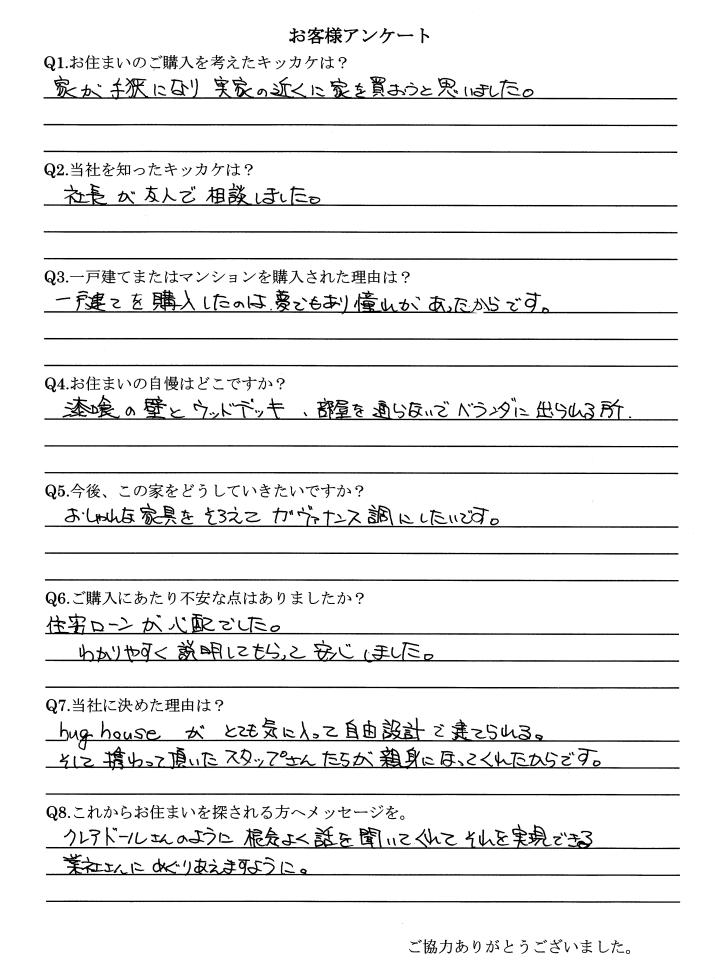 お客様アンケート
Q1.お住まいのご購入を考えたキッカケは？
家が手狭になり 実家の近くに家を買おうと思いました。
Q2.当社を知ったキッカケは？
社長が友人で相談しました。
Q3.一戸建てまたはマンションを購入された理由は？
一戸建てを購入したのは、夢でもあり憧れがあったからです。
Q4.お住まいの自慢はどこですか？
漆喰の壁とウッドデッキ、部屋を通らないでベランダに出られる所.
Q5.今後、この家をどうしていきたいですか？
おしゃれな家具をそろえてガヴァナンス調にしたいです。
Q6.ご購入にあたり不安な点はありましたか？
住宅ローンが心配でした。
わかりやすく説明してもらって安心しました。
Q7.当社に決めた理由は？
hug houseがとても気に入って自由設計で建てられる。
そして携わって頂いたスタップさんたちが親身になってくれたからです。
Q8.これからお住まいを探される方へメッセージを。
クレアドールさんのように根気よく話を聞いてくれてそれを実現できる
業社さんにめぐりあえますように。
ご協力ありがとうございました。